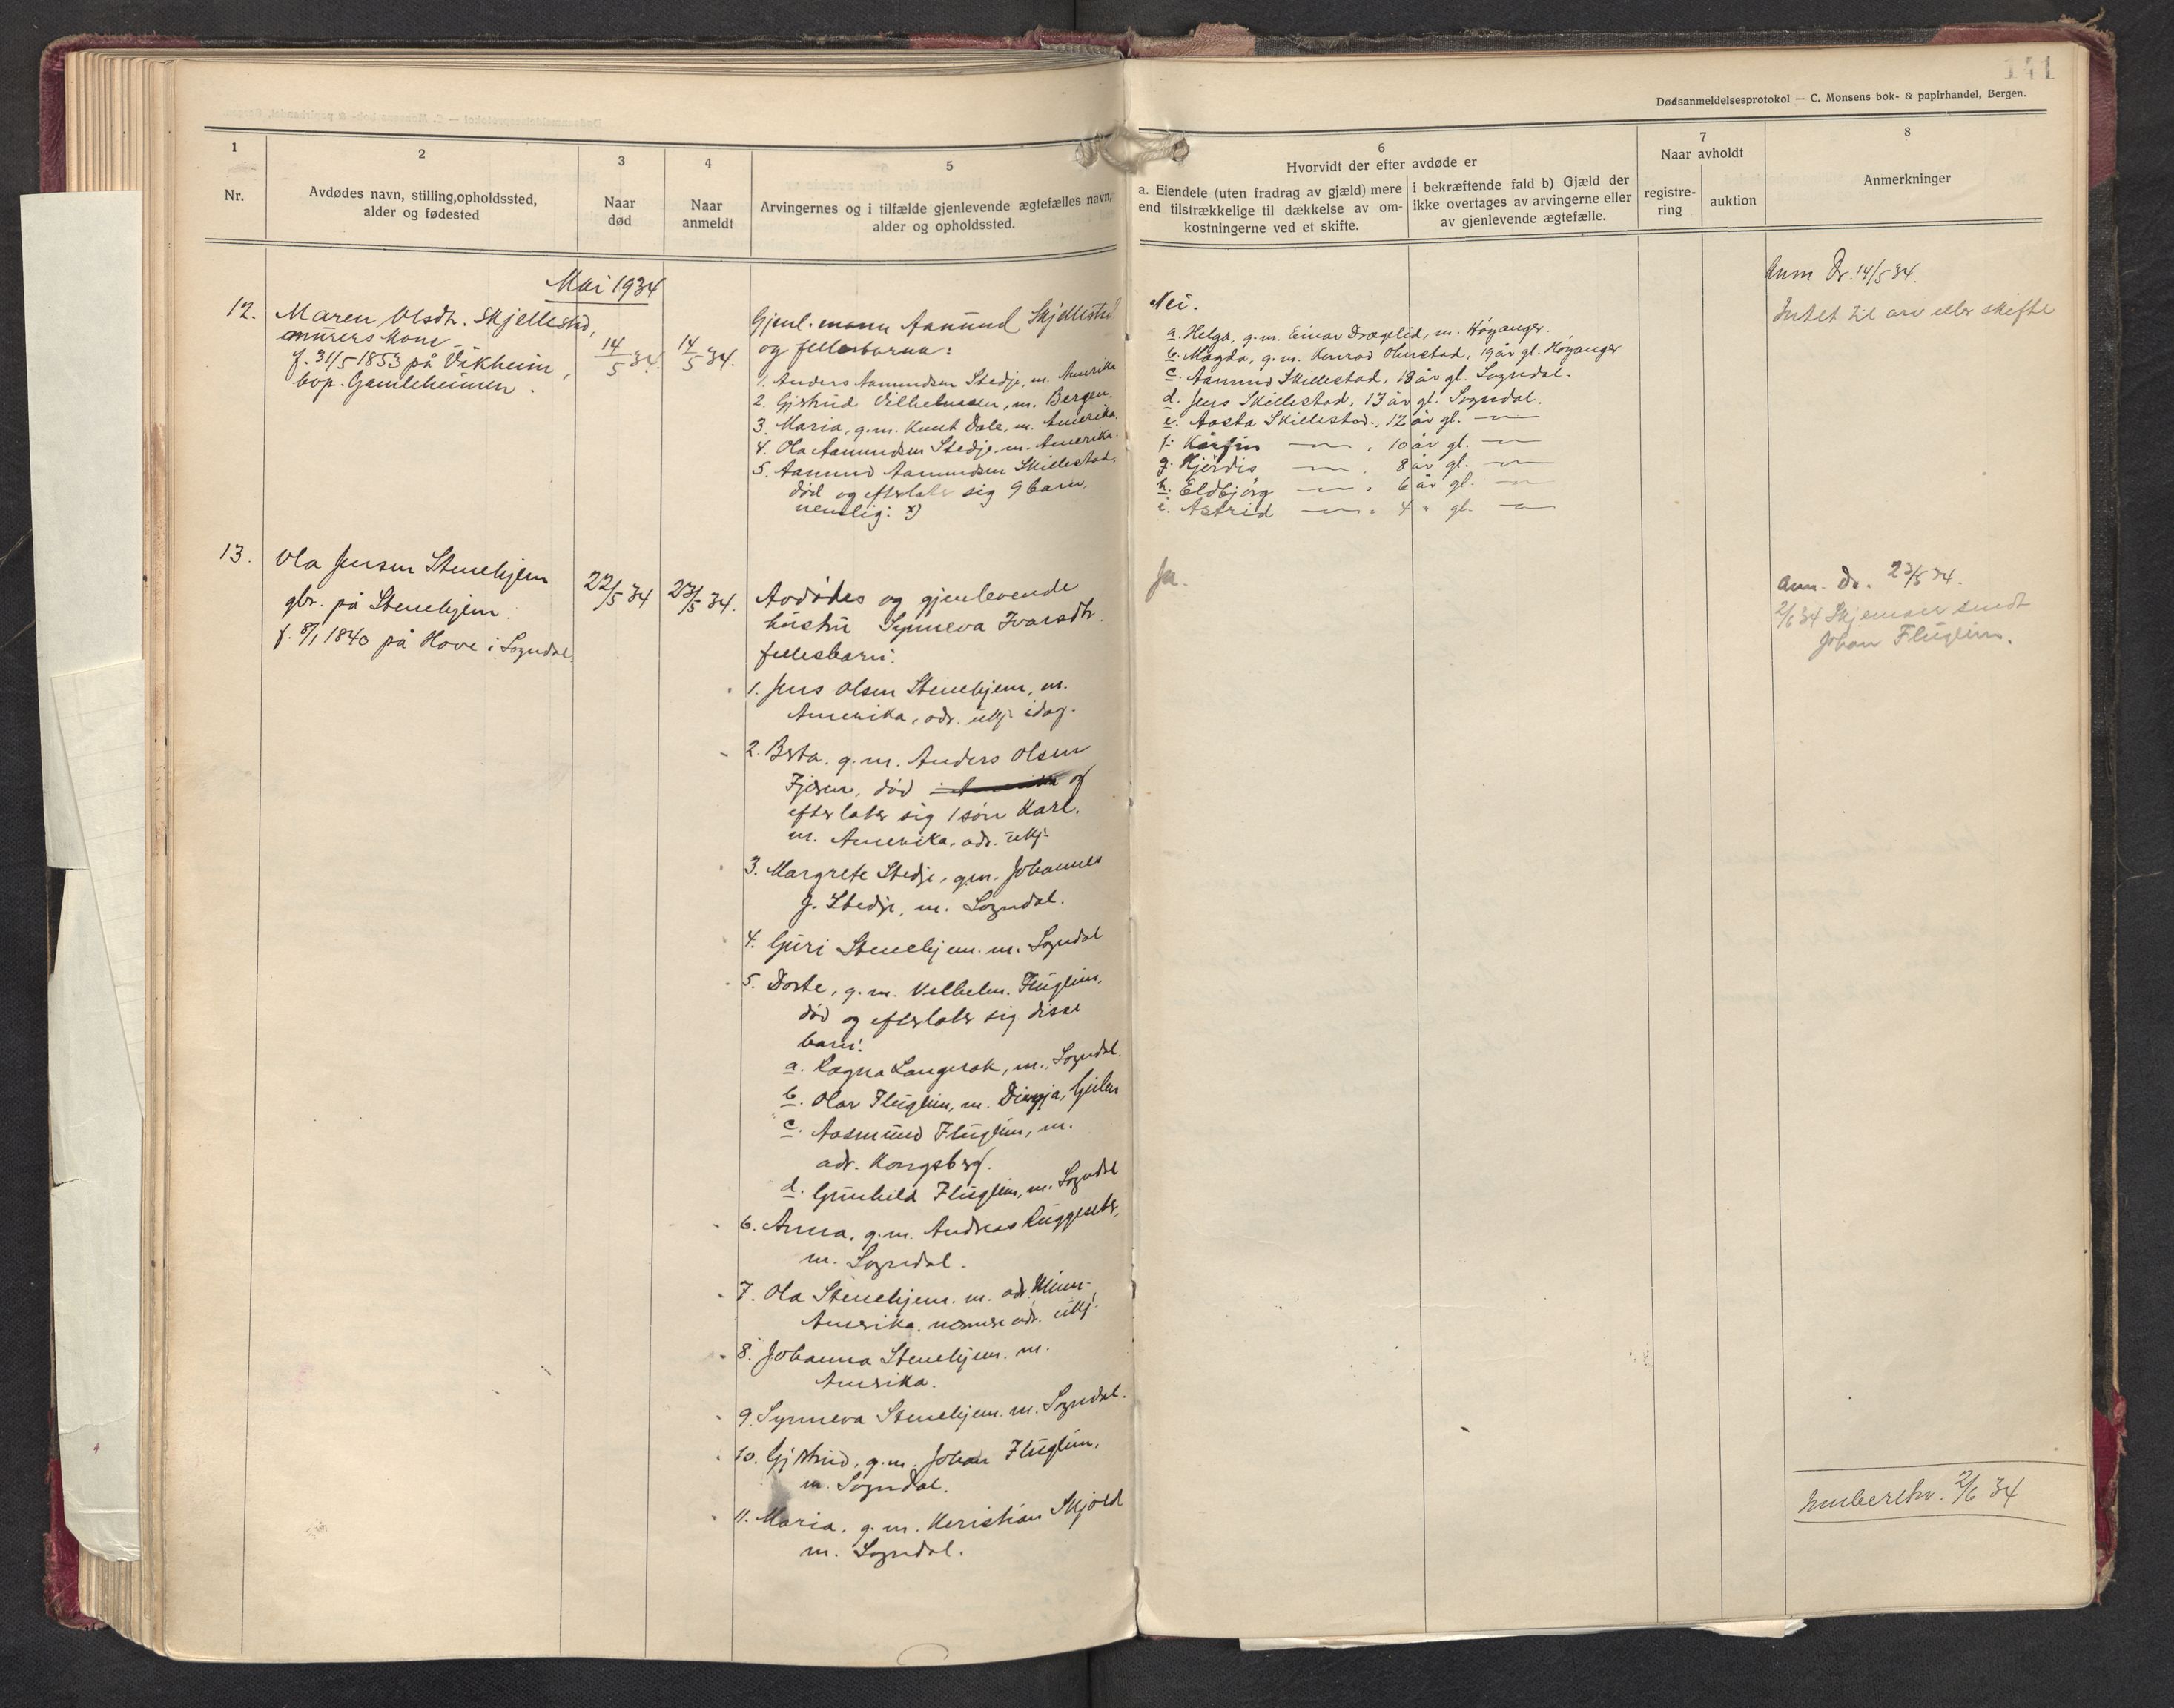 141
Dødsanmeldelsesprotokol — C. Monsens bok- & papirhandel, Bergen.
1
Nr.
2
Avdødes navn, stilling, opholdssted,
alder og fødested
3
Naar
død
4
Naar
anmeldt
5
Arvingernes og i tilfælde gjenlevende ægtefælles navn,
alder og opholdssted.
6
Hvorvidt der efter avdøde er
a. Eiendele (uten fradrag av gjæld) mere
end tilstrækkelige til dækkelse av om-
kostningerne ved et skifte.
i bekræftende fald b) Gjæld der
ikke overtages av arvingerne eller
av gjenlevende ægtefælle.
7
Naar avholdt
registre-
ring
auktion
8
Anmerkninger
Mai 1934
12.
Maren Olsdtr. Skjellestad,
murers kone
f. 31/5 1853 på Vikheim,
bop. Gamleheimen.
14/5 34.
14/5 34.
Gjenl. mann Aamund Skjellestad
og fellesbarna:
1. Anders Aamundsen Stedje, m. Amerika
2. Gjertrud Vilhelmsen, m. Bergen.
3. Maria, g.m. Knut Dale, m. Amerika.
4. Ola Aamundsen Stedje, m. Amerika.
5. Aamund Aamundsen Skillestad.
død og efterlater sig 9 barn,
nemlig: x)
Nei.
a. Helga, g.m. Einar Dræglid, m. Høyanger.
b. Magda, g.m. Konrad Ohnstad, 19 år gl. Høyanger
c. Aamund Skillestad, 18 år gl. Sogndal.
d. Jens Skillestad, 13 år gl. Sogndal.
e. Aasta Skillestad, 12 år gl. —"—
f. Kåsfin —"—, 10 år gl. —"—
g. Hjørdis —"—, 8 år gl. —"—
h. Eldbjørg —"—, 6 år gl. —"—
i. Astrid —"—, 4 " gl. —"—
Anm Dr. 14/5 34.
Intet til arv eller skifte
13.
Ola Jensen Stenehjem
gbr. på Stenehjem.
f. 8/1 1840 på Hove i Sogndal.
22/5 34
23/5 34.
Avdødes og gjenlevende
hustru Synneva Ivarsdtr.
fellesbarn:
1. Jens Olsen Stenehjem, m.
Amerika, adr. ukj. idag.
2. Brta. g.m. Anders Olsen
Fjæren, død i Amerika og
efterlater sig 1 søn Karl.
m. Amerika, adr. ukj.
3. Margrete Stedje, g.m. Johannes
J. Stedje, m. Sogndal.
4. Guri Stenehjem. m. Sogndal
5. Dorte, g.m. Vilhelm Flugheim,
død og efterlater sig disse
barn:
a. Ragna Langerak, m. Sogndal.
b. Olav Flugheim, m. Dingja, Gulen
c. Aasmund Flugheim, m.
adr. Kongsberg.
d. Gunhild Flugheim, m. Sogndal
6. Anna, g.m. Andreas Ruggesæter,
m. Sogndal.
7. Ola Stenehjem. m. adr. Minn.
Amerika. nærmere adr. ukj.
8. Johanna Stenehjem. m.
Amerika.
9. Synneva Stenehjem. m. Sogndal.
10. Gjertrud, g.m. Johan Flugheim,
m. Sogndal.
11. Maria, g.m. Kristian Skjold
m. Sogndal.
Ja.
Anm. Dr. 23/5 34.
2/6 34 Skjemaer sendt
Johan Flugheim.
Innberetn. 2/6 34